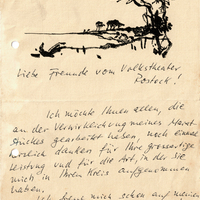 Liebe Freunde vom Volkstheater
Rostock!
Ich möchte Ihnen allen, die
an der Verwirklichung meines
Stückes gearbeitet haben, noch einmal
herzlich danken für Ihre grossartige
Leistung und für die Art, in der Sie
mich in Ihren Kreis aufgenommen
haben.
Ich freue mich schon auf meinen